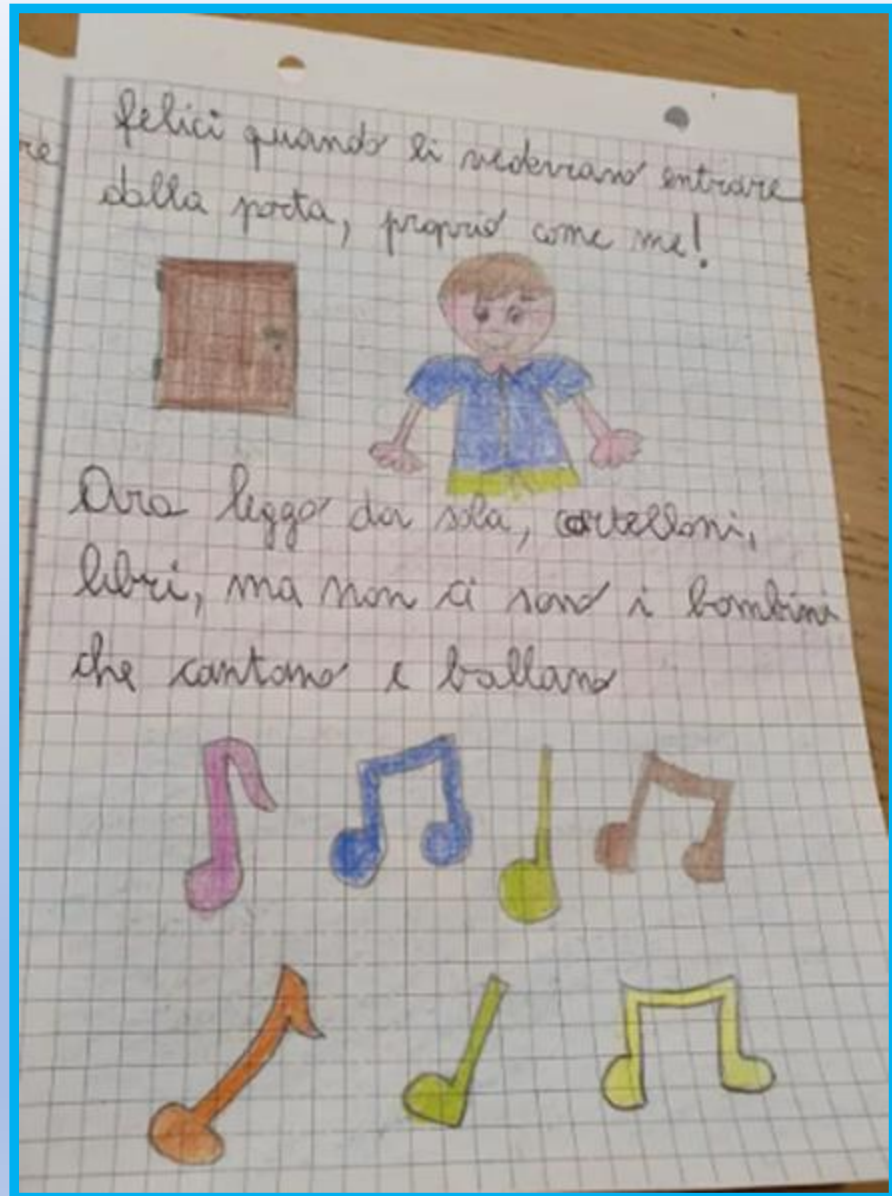 re
felici quando li vedevano entrare
dalla porta, proprio come me!
Ora leggo da sola, cartelloni,
libri, ma non ci sono i bambini
che cantano e ballano